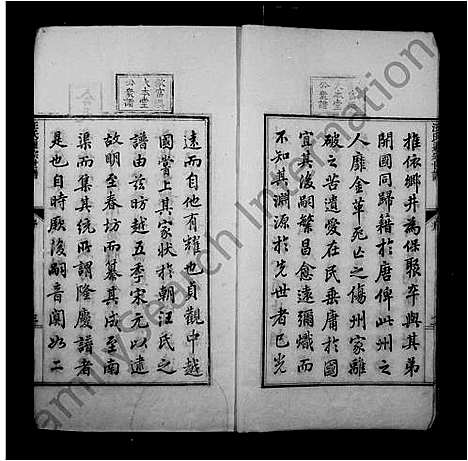 推依鄉井為保聚卒與其弟
開國同歸籍於唐俾此州之
人靡金革死亡之傷州家雖
破之苦遺愛在民垂庸於國
宜其後嗣繁昌愈遠彌熾而
不知其淵源於先世者已光
遠而自他有耀也貞觀中越
國嘗上其家狀於朝汪氏之
譜由茲昉越五季宋元以逮
故明至春坊而纂其成至南
渠而集其統所謂隆慶譜者
是也自時厥後嗣音闃如二
公眾譜
公眾譜
FamilySearch International